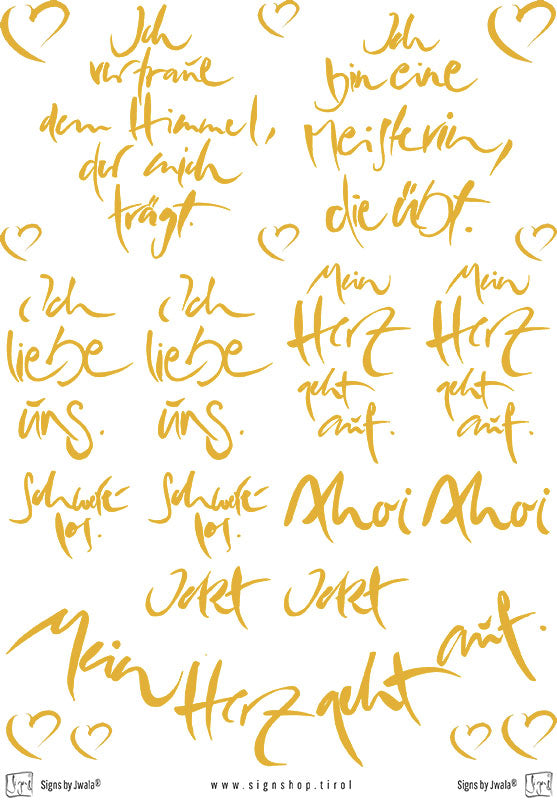 Ich
vertraue
dem Himmel,
der mich
trägt.
Ich
bin eine
Meisterin,
die übt.
Ich
liebe
uns.
Ich
liebe
uns.
Mein
Herz
geht
auf.
Mein
Herz
geht
auf.
Schwere-
los.
Schwere-
los.
Ahoi
Ahoi
Jetzt
Jetzt
Mein Herz geht auf.
Signs by Jwala®
www.signshop.tirol
Signs by Jwala®